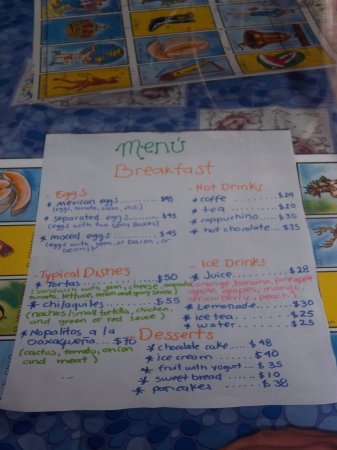 Menú
Breakfast
· Eggs
* mexican eggs........ $45
(eggs, tomato, onion, chili)
* separated eggs........ $45
(eggs with two spicy sauces)
* mixed eggs ........ $45
(eggs with, jam, or bacon, or
beans)
· Hot Drinks
* coffe ........ $24
* tea ........ $20
* cappuchino ........ $30
* hot chocolate... $35
· Typical Dishes
* Tortas ........ $50
with jam, cheese,
tomato, lettuce, onion and spicy sauce)
* chilaquiles ........ $55
(nachos/small tortilla, chicken,
and green or red sauce)
* Nopalitos a la
Oaxaqueña.... $70
(cactus, tomato, onion
and meat)
· Ice Drinks
* Juice........ $28
orange, banana, pineapple
apple, grapes, mango,
strawberry, peach)
* Lemonade....... $30
* ice tea........ $25
* water....... $25
Desserts
* chocolate cake.... $48
* ice cream ..... $40
* fruit with yogurt.. $35
* sweet bread ..... $10
* pancakes ...... $38